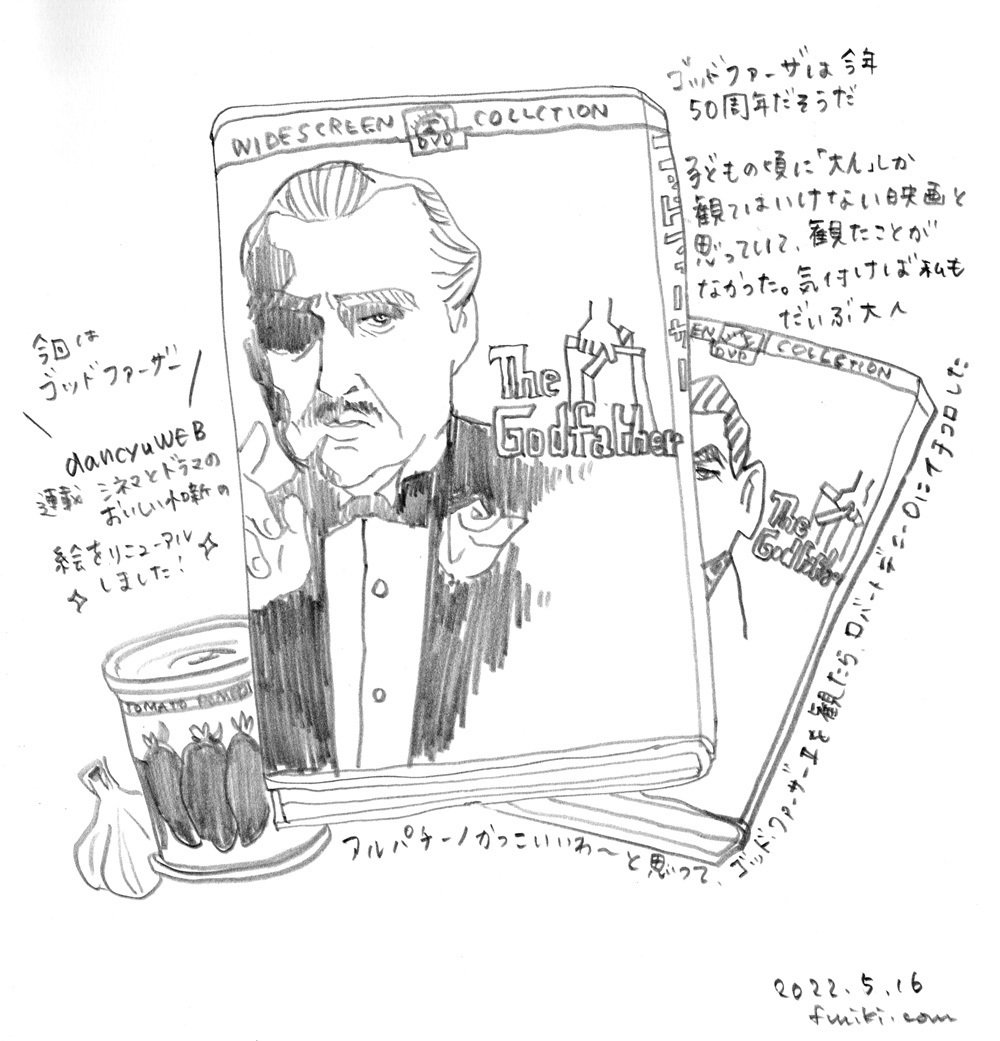 ゴッドファーザは今年
50周年だそうだ
子どもの頃に「大人」しか
観てはいけない映画と
思っていて、観たことが
なかった。気付けば私も
だいぶ大人
WIDESCREEN DVD COLLCTION
ゴッドファーザー
The
Godfather
EN DVD COLLECTION
The
Godfather
今回は
ゴッドファーザー
dancyuWEB
連載 シネマとドラマの
おいしい小噺の
絵をリニューアル
しました!
TOMATO
アルパチーノかっこいいわ〜と思って、ゴッドファーザーⅡを観たら、ロバートデニーロにイチコロした
2022.5.16
fmiki.com